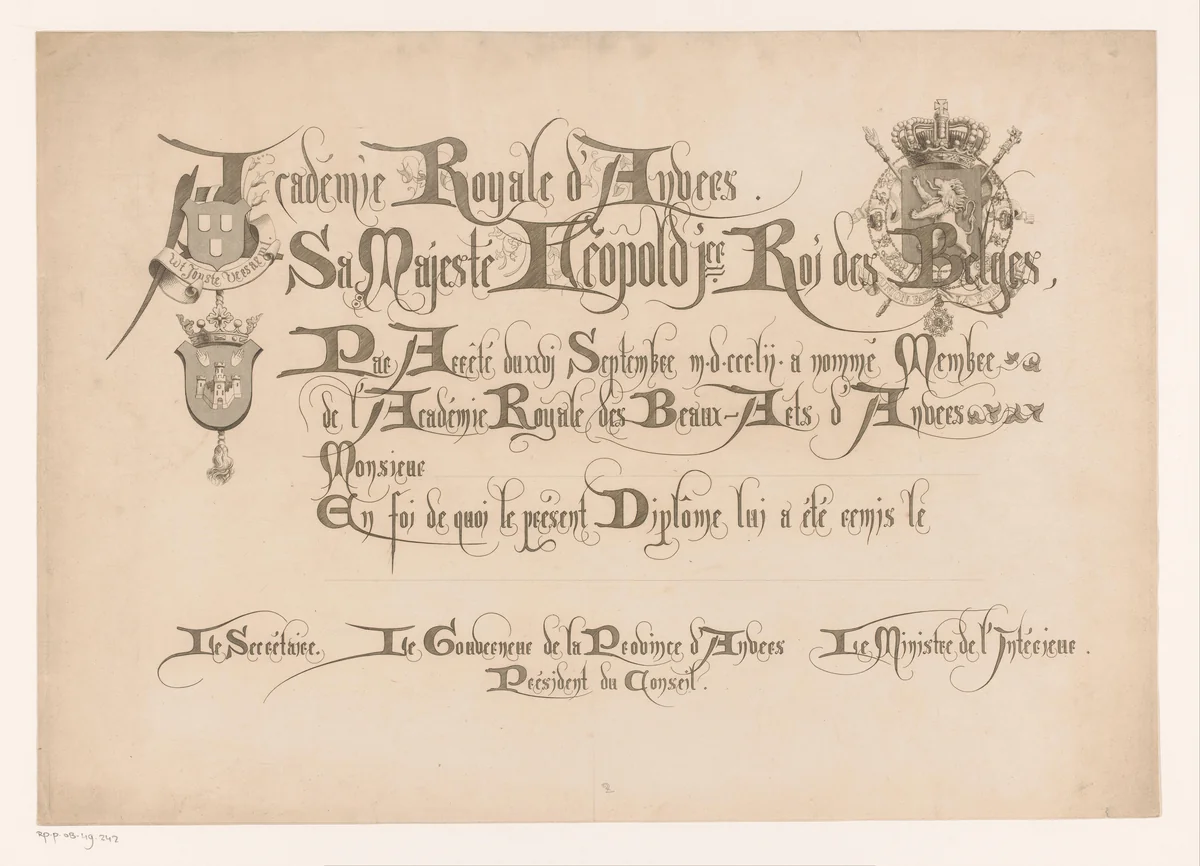 Académie Royale d'Anvers.
Wt Jonste Versaemt.
Sa Majesté Léopold jer. Roi des Belges,
Par Arrêté du xxvj Septembre m.d.ccc.lij. a nommé Membre
de l'Académie Royale des Beaux-Arts d'Anvers
Monsieur
En foi de quoi le présent Diplôme lui a été remis le
Le Secrétaire.
Le Gouverneur de la Province d'Anvers
Président du Conseil.
Le Ministre de l'Intérieur.
RP-P-OB-49.242